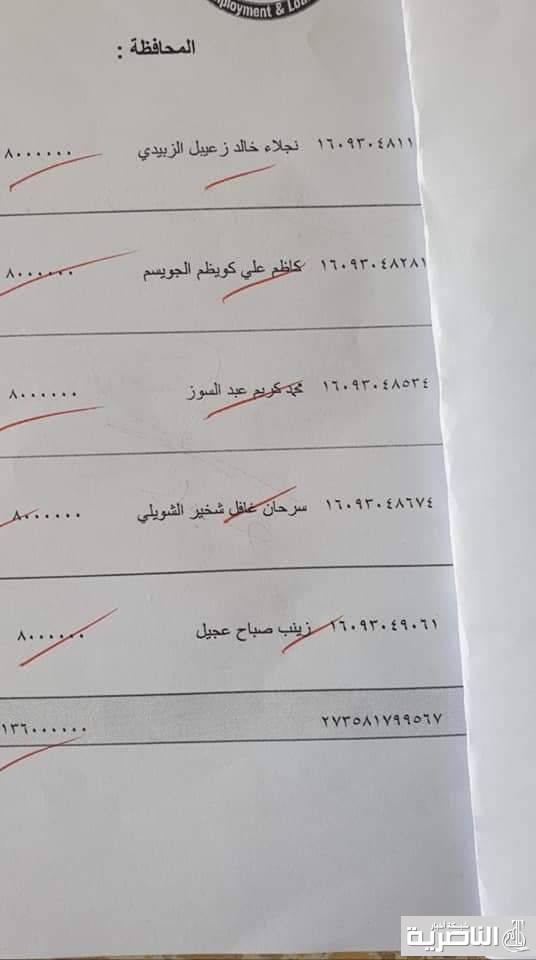 ployment & Loa
المحافظة :
١٦٠٩٣٠٤٨١١ نجلاء خالد زعيبل الزبيدي ٨٠٠٠٠٠٠
١٦٠٩٣٠٤٨٢٨١ كاظم علي كويظم الجويسم ٨٠٠٠٠٠٠
١٦٠٩٣٠٤٨٥٣٤ محمد كريم عبد السوز ٨٠٠٠٠٠٠
١٦٠٩٣٠٤٨٦٧٤ سرحان غافل شخير الشويلي ٨٠٠٠٠٠٠
١٦٠٩٣٠٤٩٠٦١ زينب صباح عجيل ٨٠٠٠٠٠٠
٢٧٣٥٨١٧٩٩٥٦٧ ١٣٦٠٠٠٠٠٠
شبكة أخبار
الناصرية